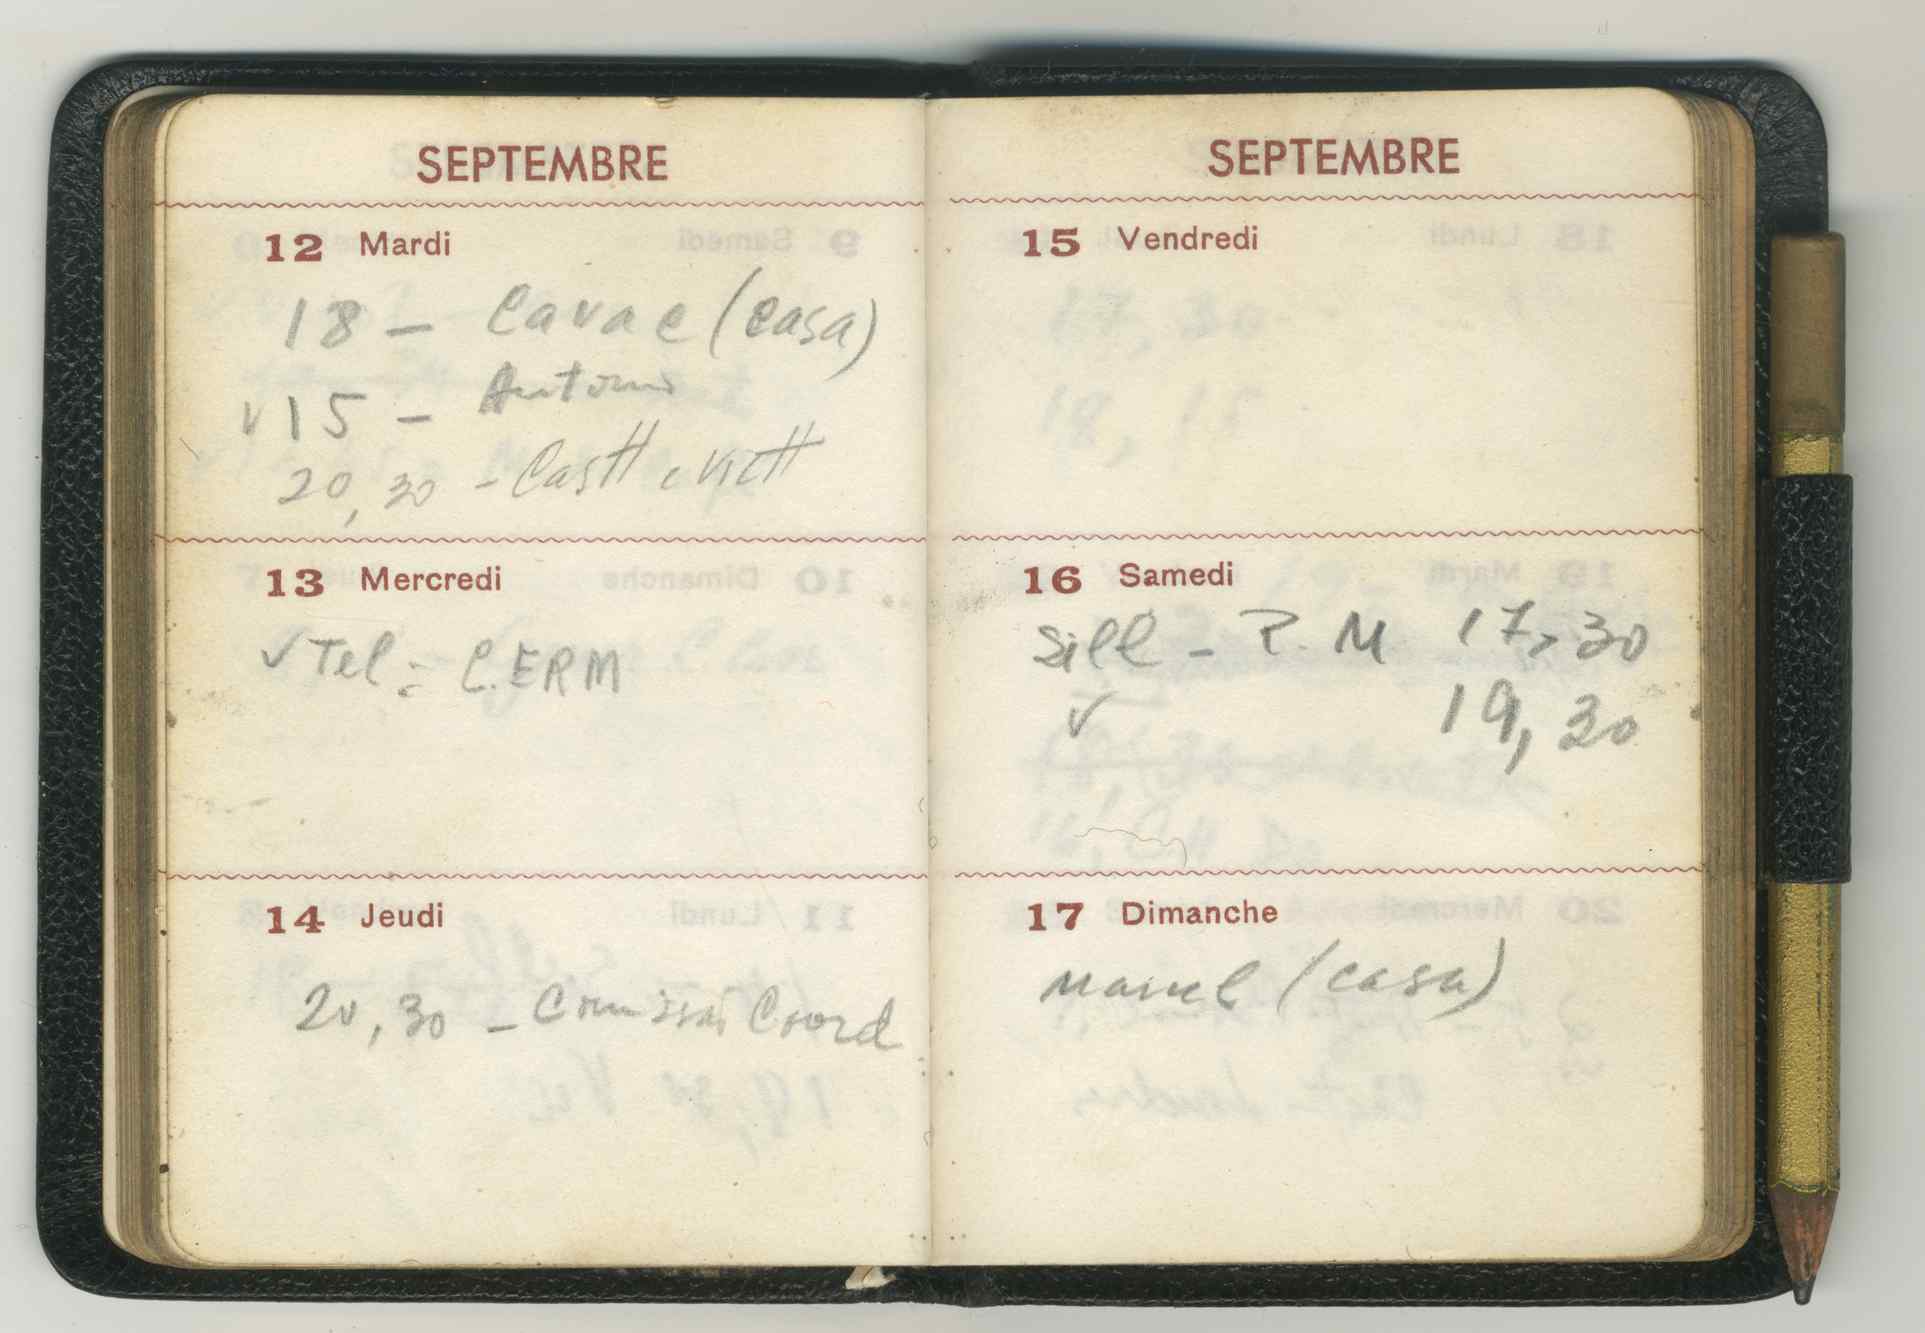 SEPTEMBRE
12 Mardi
18 – Cavac (casa)
√ 15 – Antonio
20,30 –
13 Mercredi
√ Tel: C.ERM
14 Jeudi
20,30 – Coord
SEPTEMBRE
15 Vendredi
16 Samedi
Sill – P. M 17,30
√ 19,30
17 Dimanche
(casa)